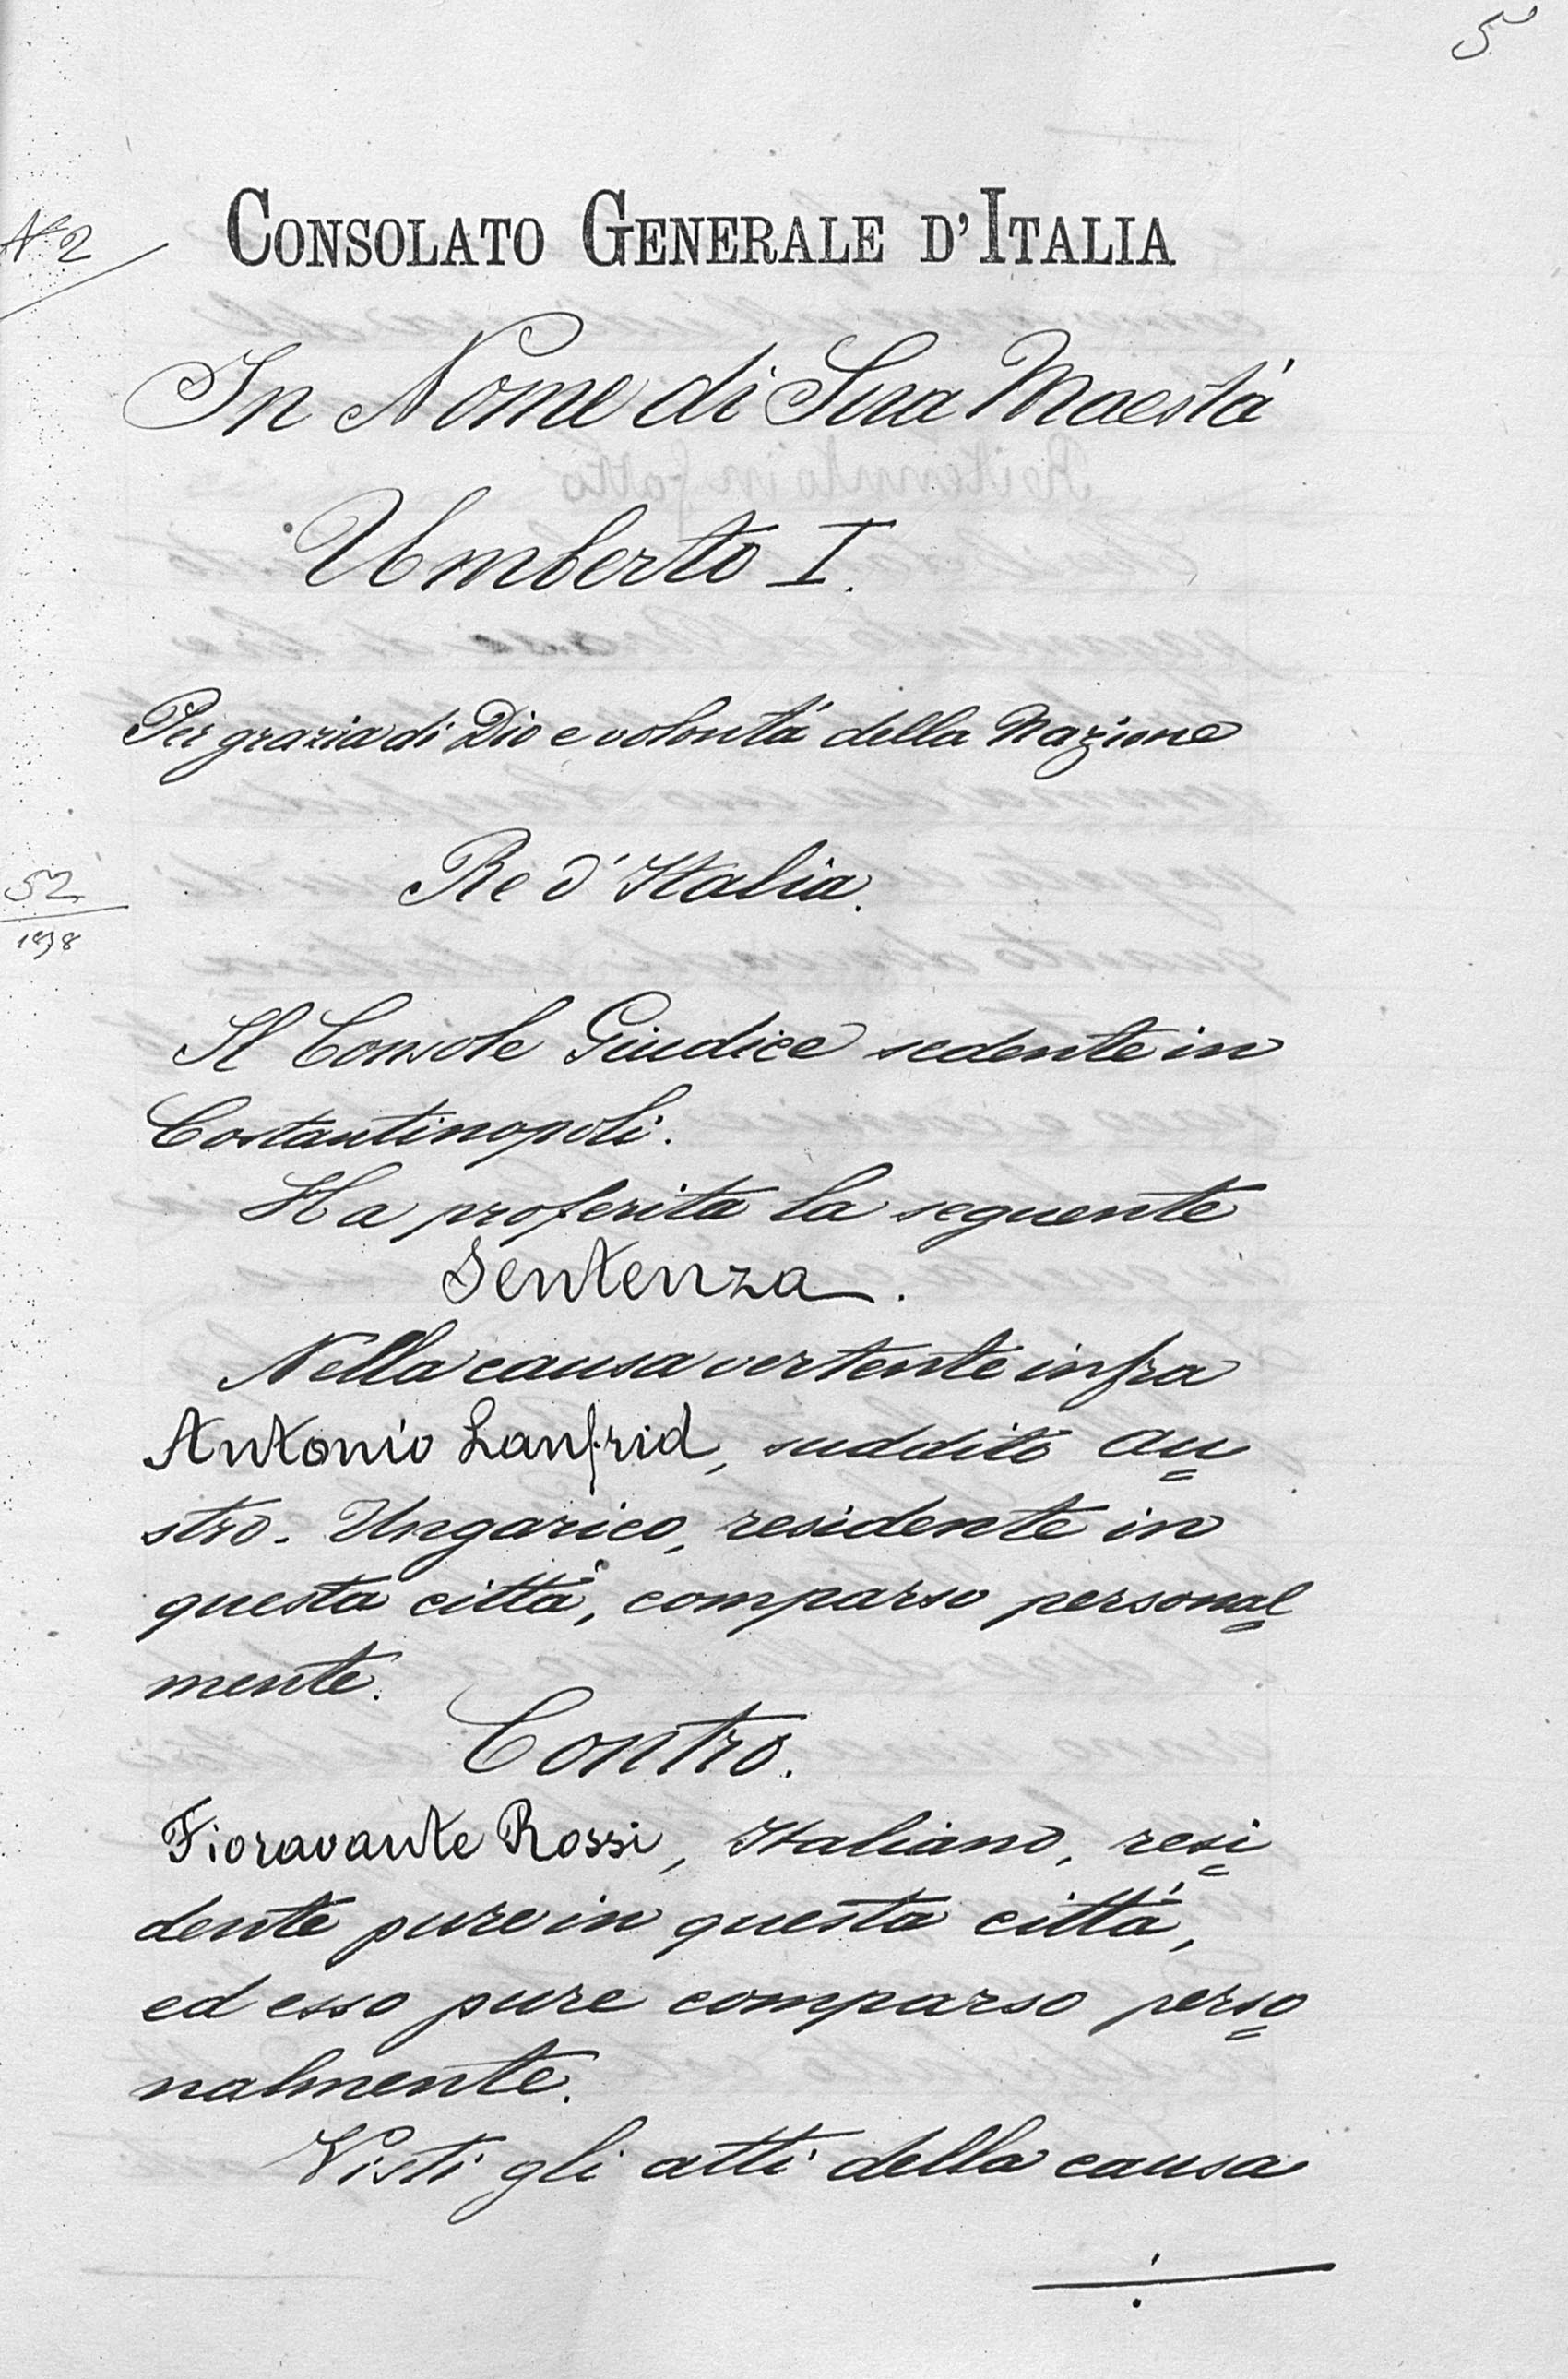 5
N° 2
CONSOLATO GENERALE D'ITALIA
In Nome di Sua Maestá
Umberto I.
Per grazia di Dio e volontá della Nazione
Re d'Italia.
52
1938
Il Console Giudice sedente in
Costantinopoli.
Ha proferita la seguente
Sentenza.
Nella causa vertente infra
Antonio Lanfrid, suddito au=
stro-Ungarico, residente in
questa cittá, comparso personal=
mente.
Contro.
Fioravante Rossi, Italiano, resi=
dente pure in questa cittá,
ed esso pure comparso perso=
nalmente.
Visti gli atti della causa